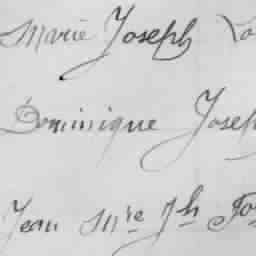 Marie Joseph
Dominique Joseph
Jean Mre Jh